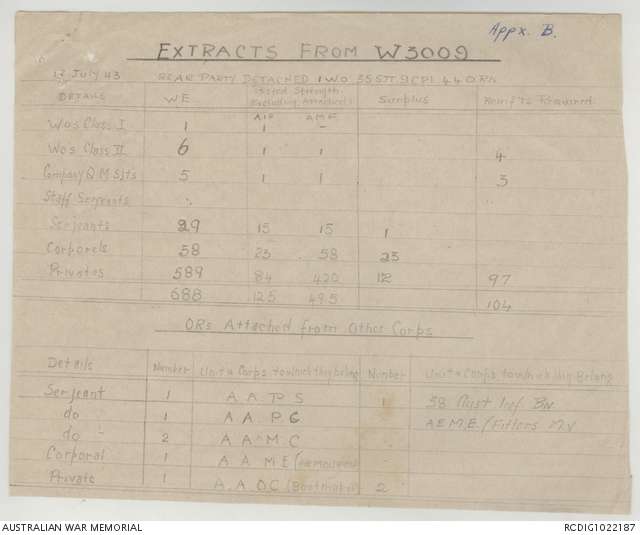 Appx. B.
EXTRACTS FROM W3009
12 July 43 REAR PARTY DETACHED 1WO 3SSTT 9CPL 44 ORs
DETAILS WE Posted Strength Excluding Attached Surplus Reinf'ts Required
AIF AMF
W.O's Class I 1 1 -
W.O's Class II 6 1 1 4
Company Q M Sjts 5 1 1 3
Staff Serjeants
Serjeants 29 15 15 1
Corporals 58 25 58 25
Privates 589 84 420 12 97
688 125 495 104
ORs Attached from Other Corps
Details Number Unit & Corps to which they belong Number Unit & Corps to which they Belong
Serjeant 1 A A P S 1 58 Aust Inf. BN
do 1 A A . P. C A E M.E. (Fitters M.V
do - 2 A A M. C
Corporal 1 A A M E (Armourer)
Private 1 A. A O C (Bootmaker) 2
AUSTRALIAN WAR MEMORIAL RCDIG1022187